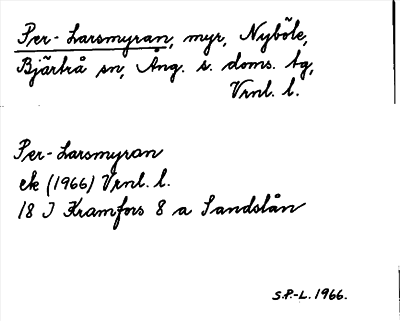 Per-Larsmyran, myr, Nyböle,
Bjärtrå sn, Ång. s. doms. tg,
Vrnl. l.
Per-Larsmyran
ek (1966) Vrnl. l.
18 J Kramfors 8 a Sandslån
S.P.-L. 1966.